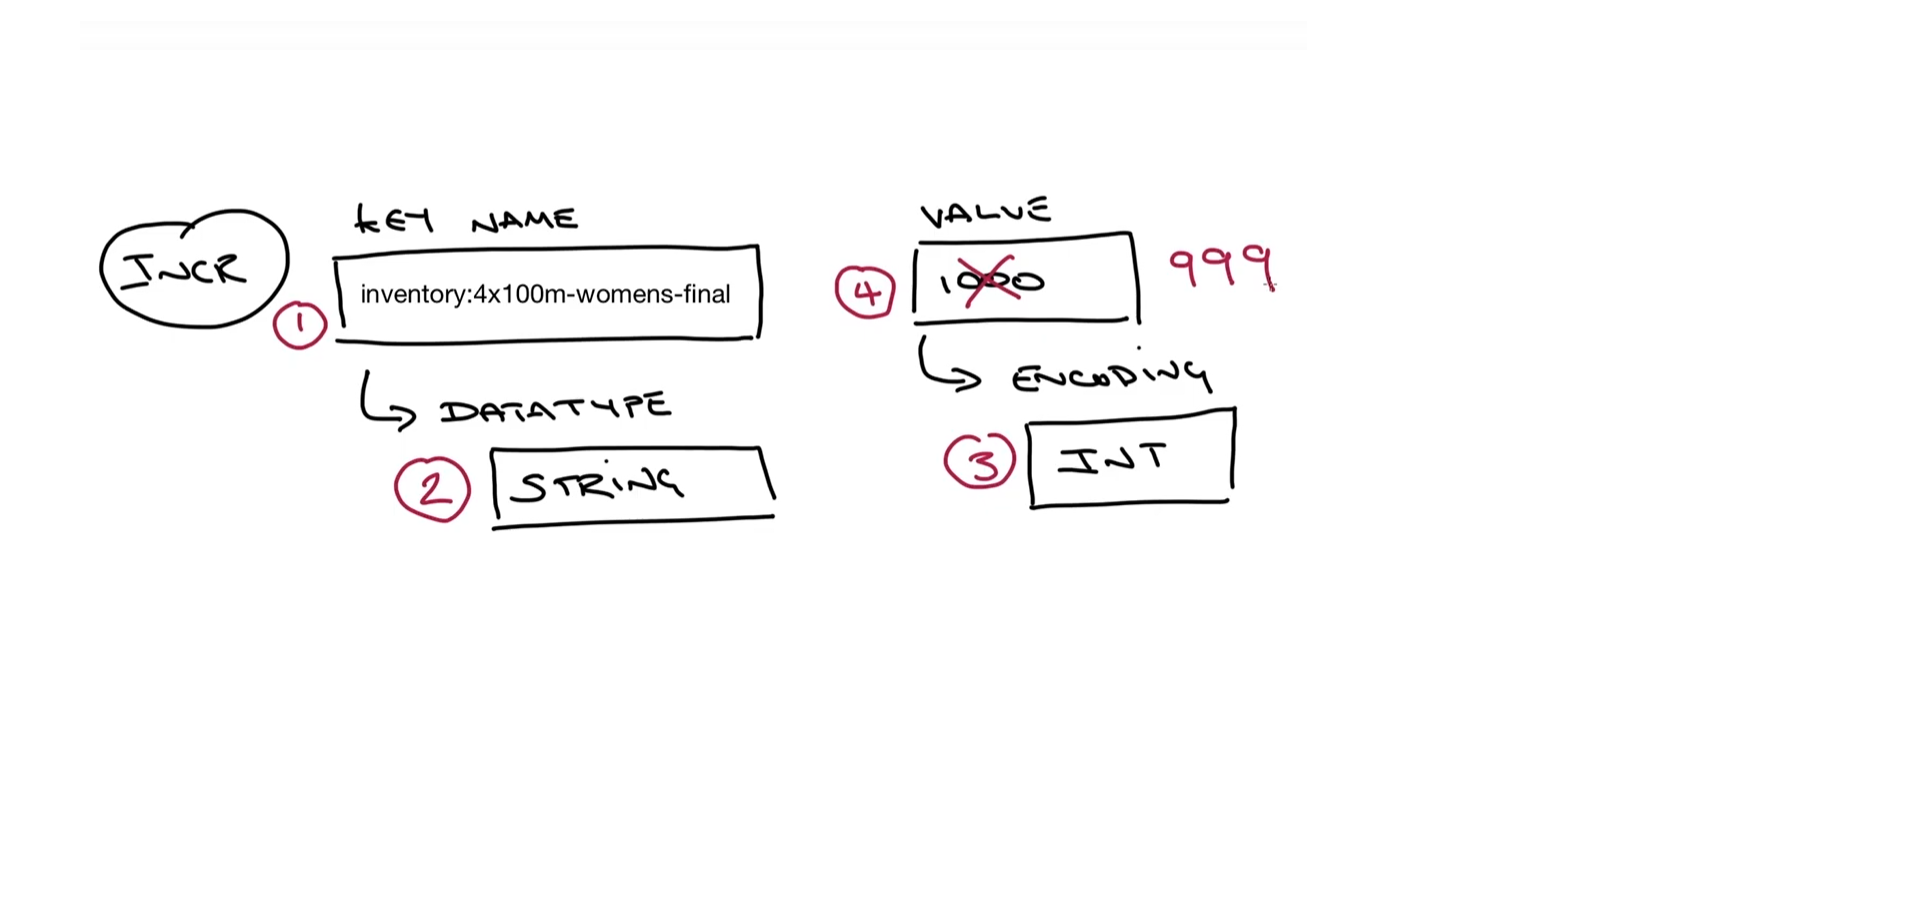 INCR
KEY NAME
1
inventory:4x100m-womens-final
DATATYPE
2
STRING
VALUE
4
1000
999
ENCODING
3
INT